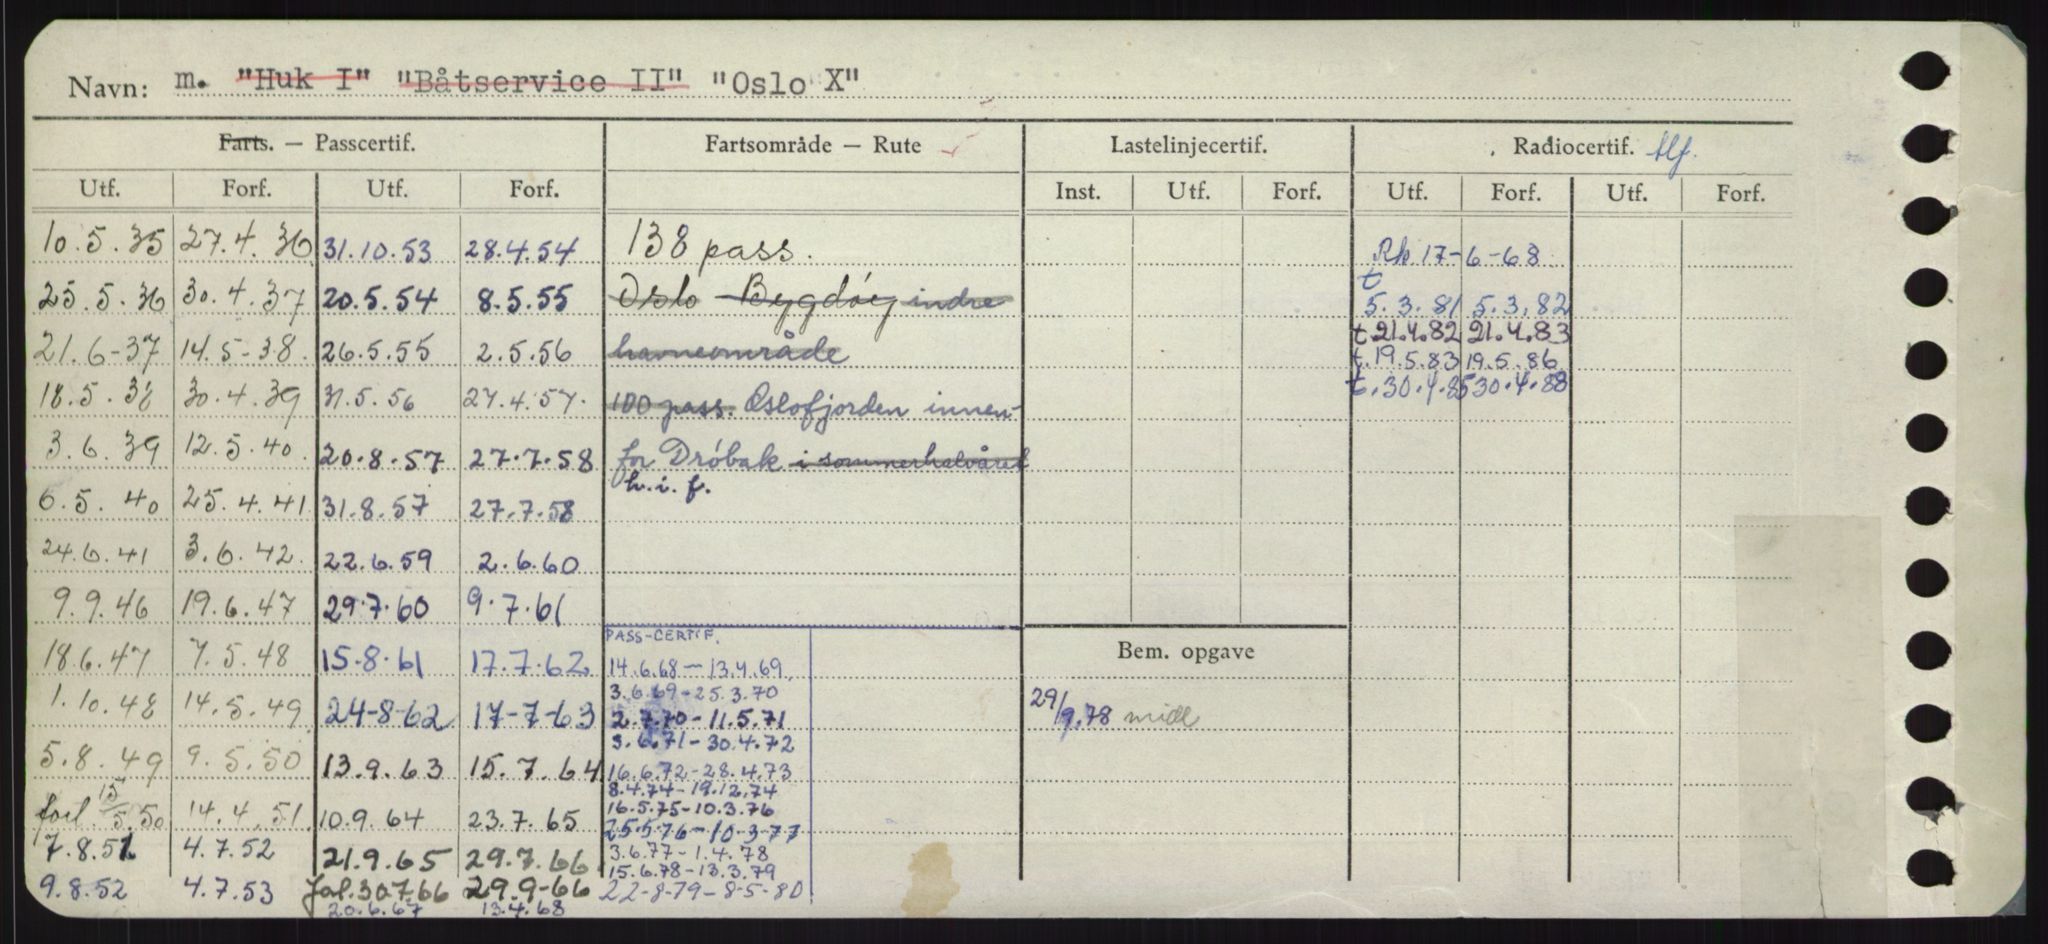 Navn: m. "Huk I" "Båtservice II" "Oslo X"
Farts. — Passcertif. Fartsområde — Rute Lastelinjecertif. Radiocertif. tlf.
Utf. Forf. Utf. Forf. Inst. Utf. Forf. Utf. Forf. Utf. Forf.
10.5.35 27.4.36 31.10.53 28.4.54 138 pass. Rk 17-6-68
t
25.5.36 30.4.37 20.5.54 8.5.55 Oslo - Bygdöy indre 5.3.81 5.3.82
t.21.4.82 21.4.83
21.6-37 14.5-38. 26.5.55 2.5.56 havneområde t.19.5.83 19.5.86
t.30.4.85 30.4.88
18.5.38 30.4.39 31.5.56 27.4.57. 100 pass. Oslofjorden innen-
3.6.39 12.5.40. 20.8.57 27.7.58 for Dröbak i sommerhalvåret
h.i.f.
6.5.40 25.4.41 31.8.57 27.7.58
24.6.41 3.6.42. 22.6.59 2.6.60
9.9.46 19.6.47 29.7.60 9.7.61
PASS-CERTIF. Bem. opgave
18.6.47 7.5.48 15.8.61 17.7.62 14.6.68-13.4.69.
3.6.69-25.3.70
1.10.48 14.5.49 24-8-62 17-7-63 2.7.70-11.5.71 29/9.78 midl
3.6.71-30.4.72
5.8.49 9.5.50 13.9.63 15.7.64 16.6.72-28.4.73
8.4.74-19.12.74
forl. 15/5.50 14.4.51. 10.9.64 23.7.65 16.5.75-10.3.76
25.5.76-10-3-77
7.8.51 4.7.52 21.9.65 29.7.66 3.6.77-1.4.78
15.6.78-13.3.79
9.8.52 4.7.53 30.7.66 29.9-66 22-8-79-8-5-80
20.6.67 13.4.68